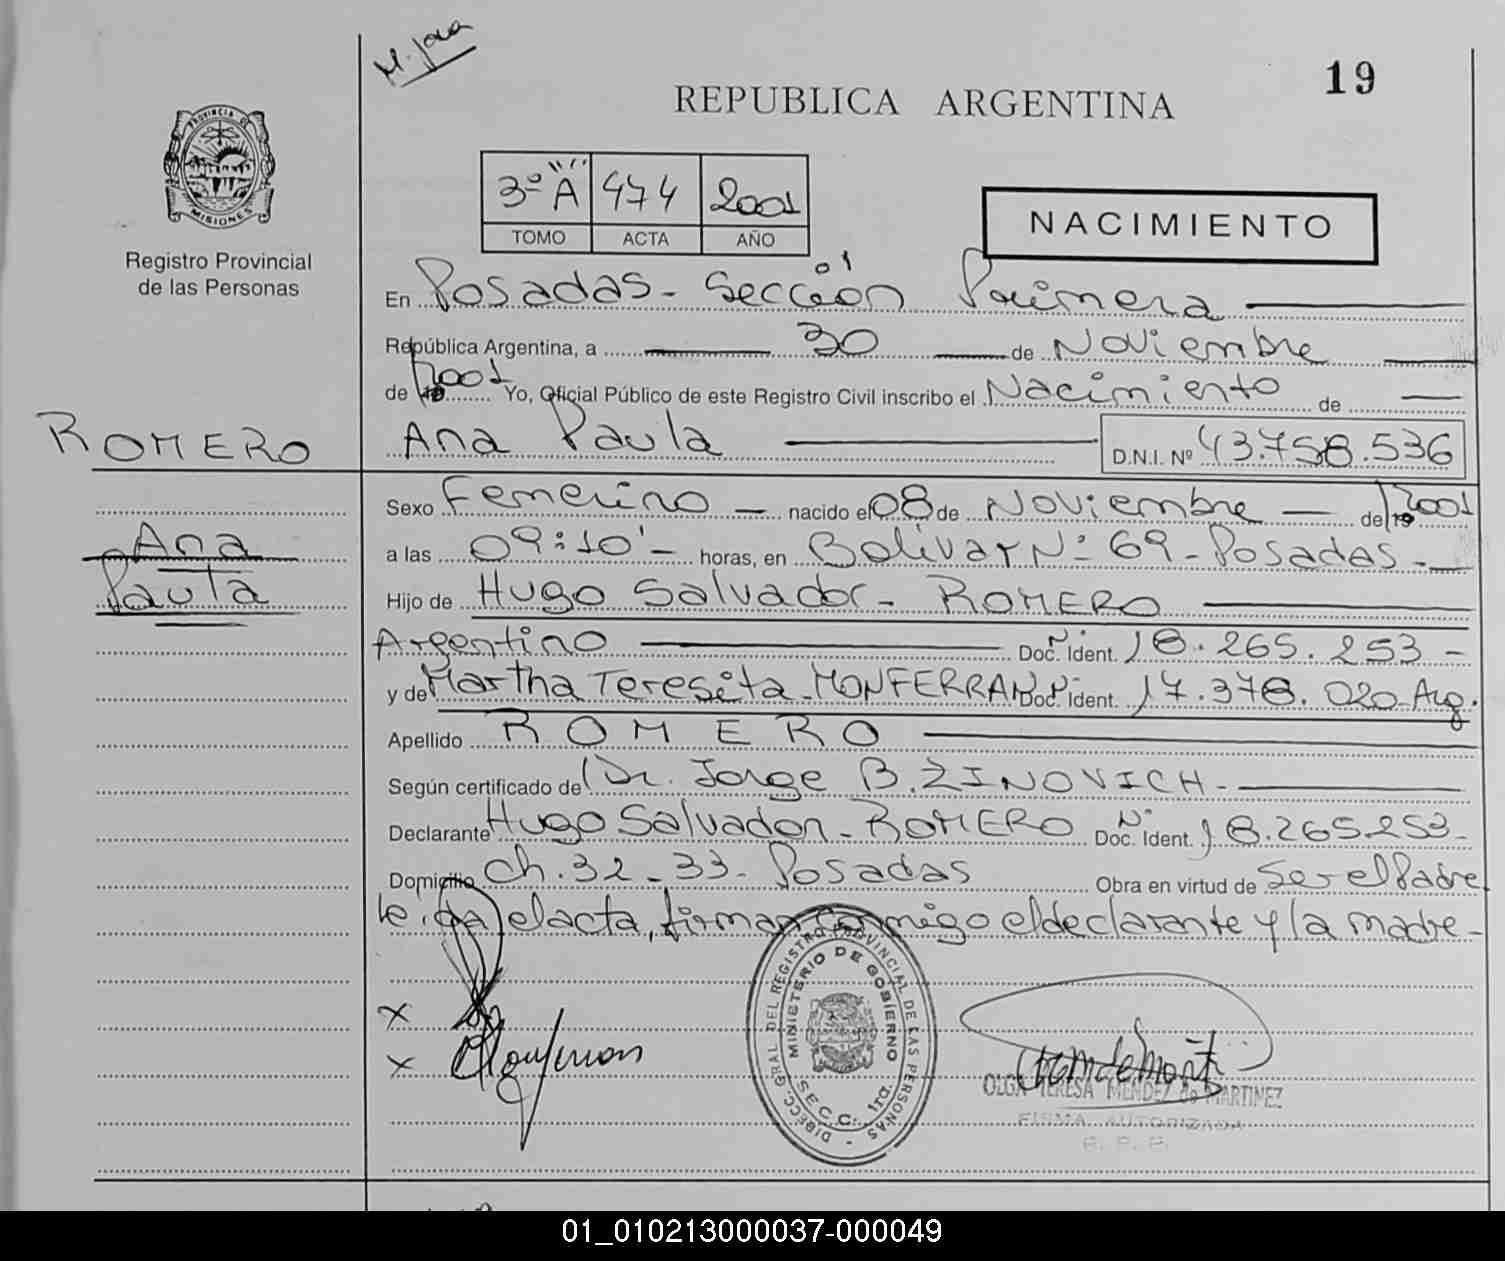 19
REPUBLICA ARGENTINA
PROVINCIA DE
MISIONES
Registro Provincial
de las Personas
3º A 474 2001
TOMO ACTA AÑO
NACIMIENTO
En Posadas - Sección 01 Primera
República Argentina, a 30 de Noviembre
de 2001 Yo, Oficial Público de este Registro Civil inscribo el Nacimiento de
ROMERO Ana Paula D.N.I. Nº 43.758.536
Sexo Femenino - nacido el 08 de Noviembre - de 2001
Ana
a las 09:10' - horas, en Bolívar Nº 69 - Posadas -
Paula
Hijo de Hugo Salvador - ROMERO
Argentino Doc. Nº Ident. 18.265.253 -
y de Martha Teresita - MONFERRAN Doc. Nº Ident. 17.378.020 - Arg.
Apellido ROMERO
Según certificado de Dr. Jorge B. ZINOVICH -
Declarante Hugo Salvador - ROMERO Doc. Nº Ident. 18.265.253 -
Domicilio Ch. 32 - 33 - Posadas Obra en virtud de Ser el Padre
leída el acta, firman conmigo el declarante y la madre -
DIRECC. GRAL DEL REGISTRO PROVINCIAL DE LAS PERSONAS -
MINISTERIO DE GOBIERNO
SECC. 1ra.
x
x
OLGA TERESA MENDEZ de MARTINEZ
FIRMA AUTORIZADA
R. P. P.
01_010213000037-000049